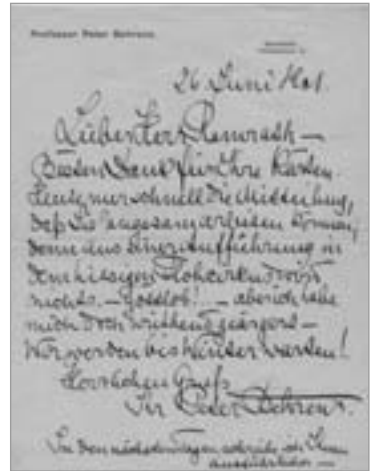 Professor Peter Behrens.
26 Juni 1901.
Lieber Herr
Besten Dank für Ihre Karten.
Heute nur schnell die Mitteilung,
daß Sie langsam reisen können,
denn aus einer Aufführung in
dem hiesigen wird
nichts. – Gottlob! – aber ich habe
mich doch wüthend geärgert –
Wir werden bis warten!
Herzlichen Gruß
Ihr Peter Behrens.
In den nächsten Tagen schreibe ich Ihnen
ausführlicher –